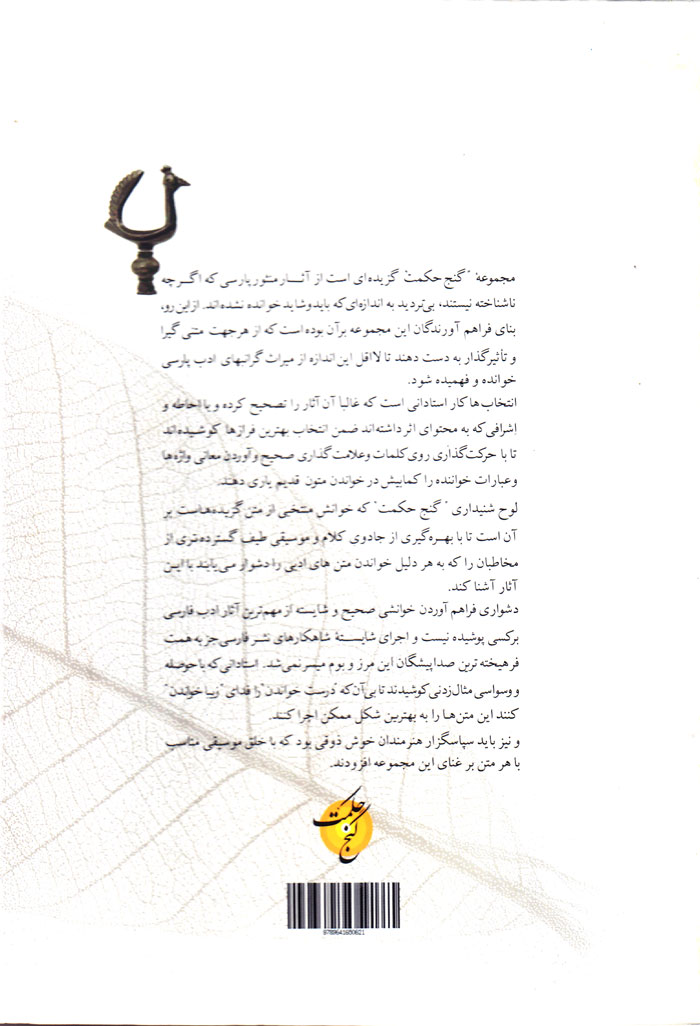 مجموعهٔ "گنج حکمت" گزیده ای است از آثار منثور پارسی که اگرچه
ناشناخته نیستند، بی‌تردید به اندازه‌ای که باید وشاید خوانده نشده‌اند. ازاین رو،
بنای فراهم آورندگان این مجموعه برآن بوده است که از هرجهت متنی گیرا
و تأثیرگذار به دست دهند تا لااقل این اندازه از میراث گرانبهای ادب پارسی
خوانده و فهمیده شود.
انتخاب‌ها کار استادانی است که غالباً آن آثار را تصحیح کرده و با احاطه و
اِشرافی که به محتوای اثر داشته‌اند ضمن انتخاب بهترین فرازها کوشیده‌اند
تا با حرکت‌گذاری روی کلمات وعلامت‌گذاری صحیح وآوردن معانی واژه‌ها
وعبارات خواننده را کمابیش در خواندن متون قدیم یاری دهند.
لوح شنیداری "گنج حکمت" که خوانش منتخبی از متن گزیده‌هاست بر
آن است تا با بهره‌گیری از جادوی کلام و موسیقی طیف گسترده‌تری از
مخاطبان را که به هر دلیل خواندن متن های ادبی را دشوار می‌یابند با این
آثار آشنا کند.
دشواری فراهم آوردن خوانشی صحیح و شایسته از مهم‌ترین آثار ادب فارسی
برکسی پوشیده نیست و اجرای شایستهٔ شاهکارهای نثر فارسی جز به همت
فرهیخته ترین صداپیشگان این مرز و بوم میسر نمی‌شد. استادانی که با حوصله
و وسواسی مثال‌زدنی کوشیدند تا بی‌آن‌که "درست خواندن" را فدای "زیبا خواندن"
کنند این متن‌ها را به بهترین شکل ممکن اجرا کنند.
و نیز باید سپاسگزار هنرمندان خوش ذوقی بود که با خلق موسیقی مناسب
با هر متن بر غنای این مجموعه افزودند.
گنج حکمت
9789641650621